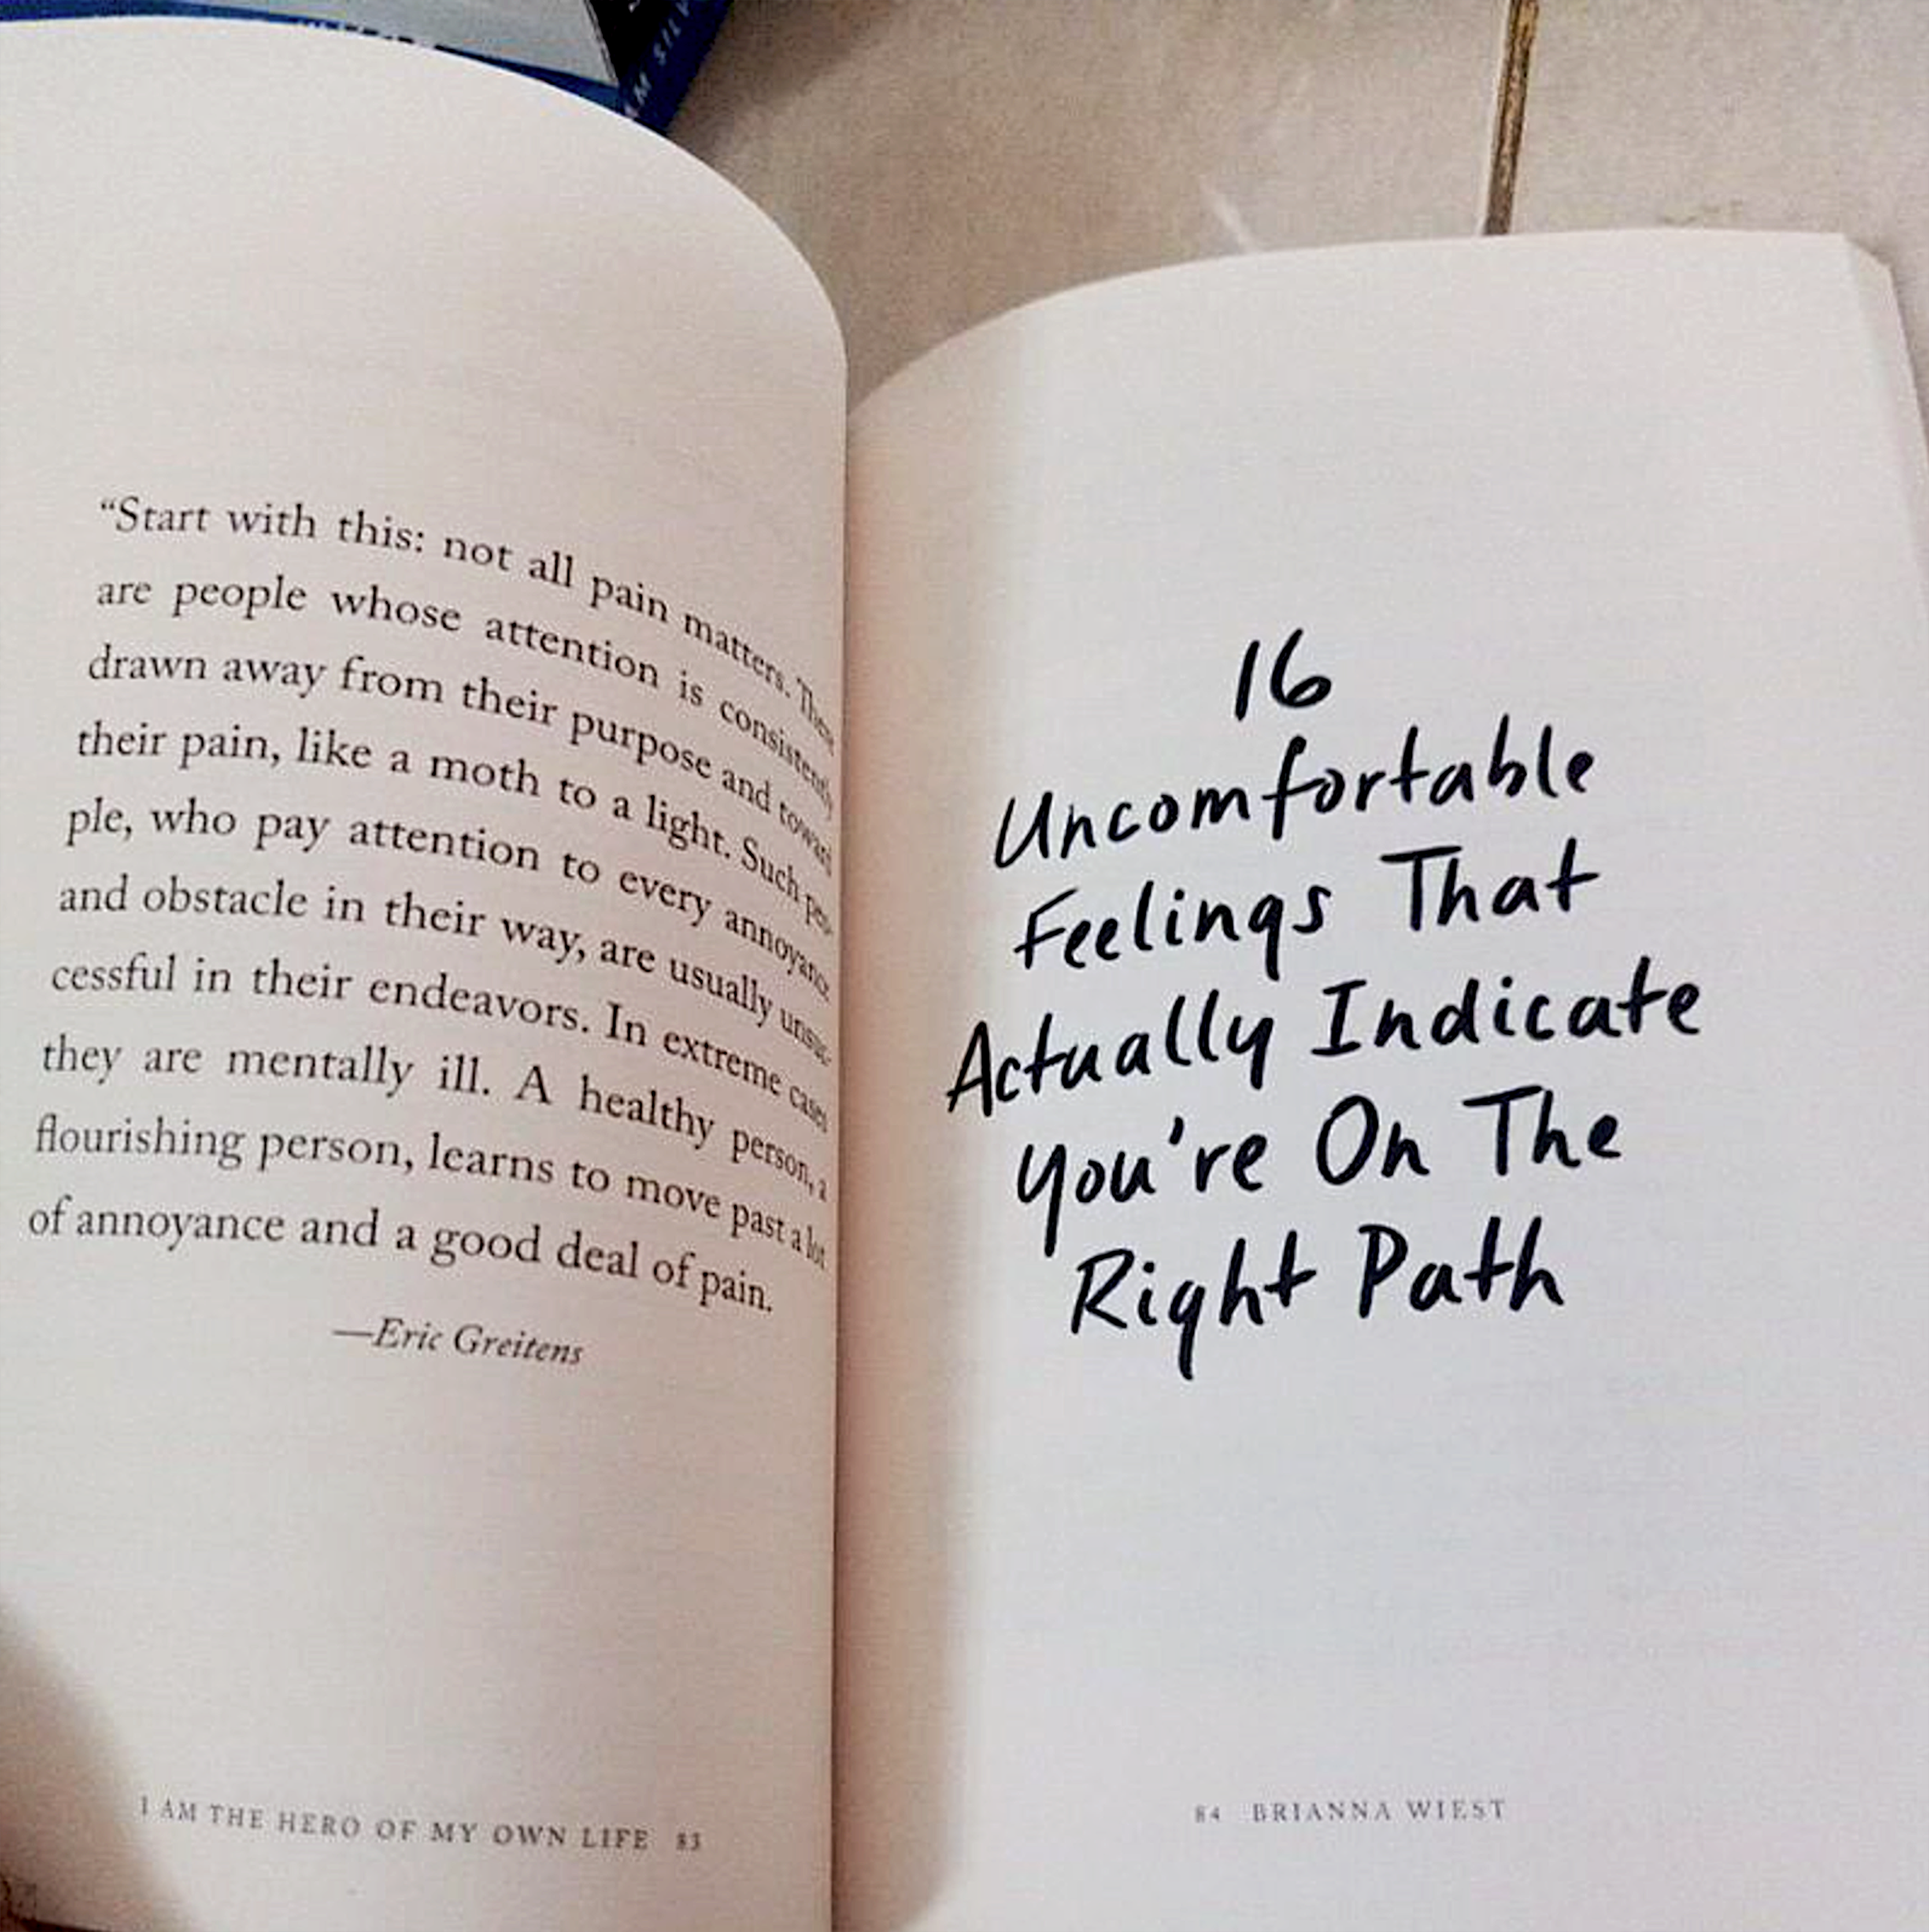 “Start with this: not all pain matters. There
are people whose attention is consistently
drawn away from their purpose and toward
their pain, like a moth to a light. Such peo-
ple, who pay attention to every annoyance
and obstacle in their way, are usually unsuc-
cessful in their endeavors. In extreme cases
they are mentally ill. A healthy person, a
flourishing person, learns to move past a lot
of annoyance and a good deal of pain.
—Eric Greitens
I AM THE HERO OF MY OWN LIFE 83
16
Uncomfortable
Feelings That
Actually Indicate
You're On The
Right Path
84 BRIANNA WIEST